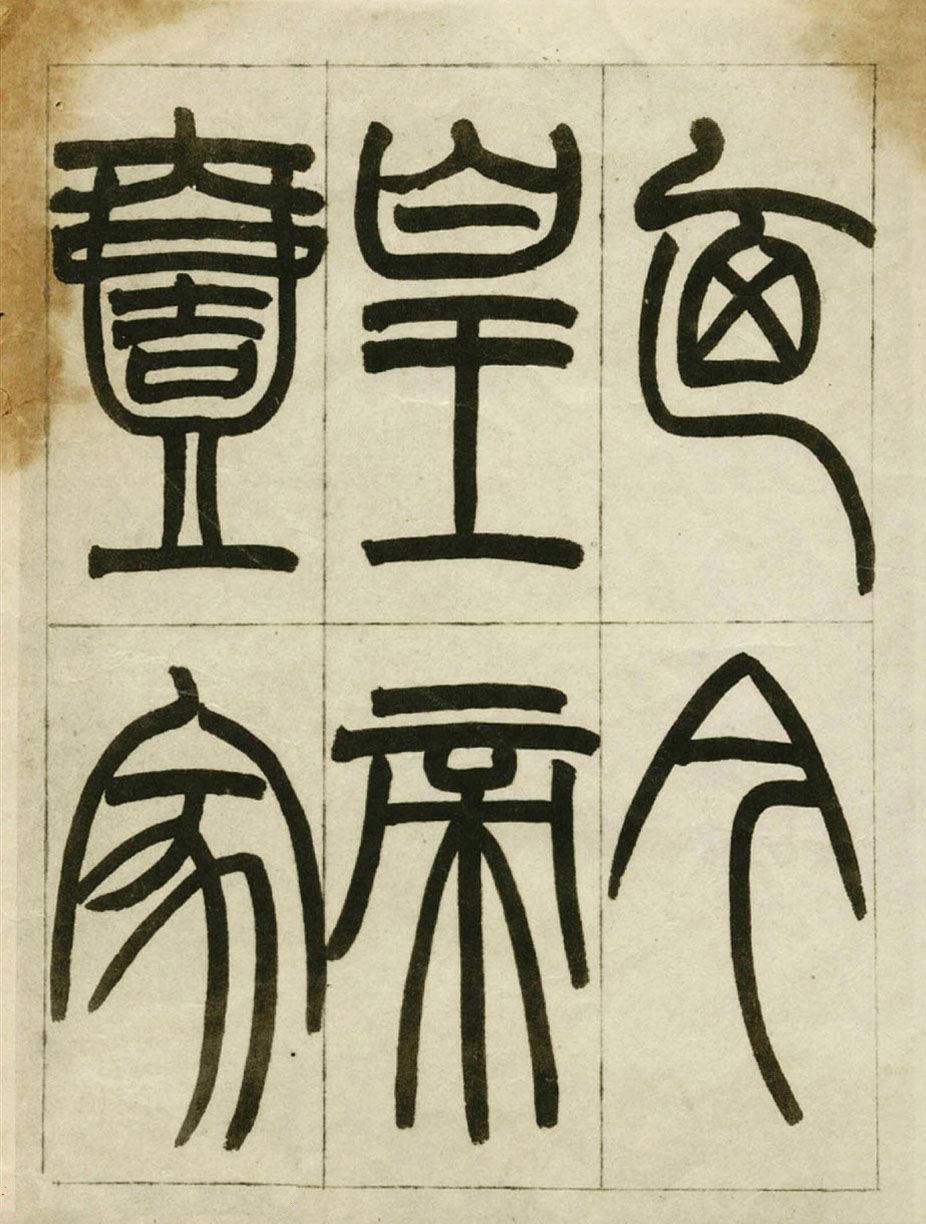 迺今
皇帝
壹家